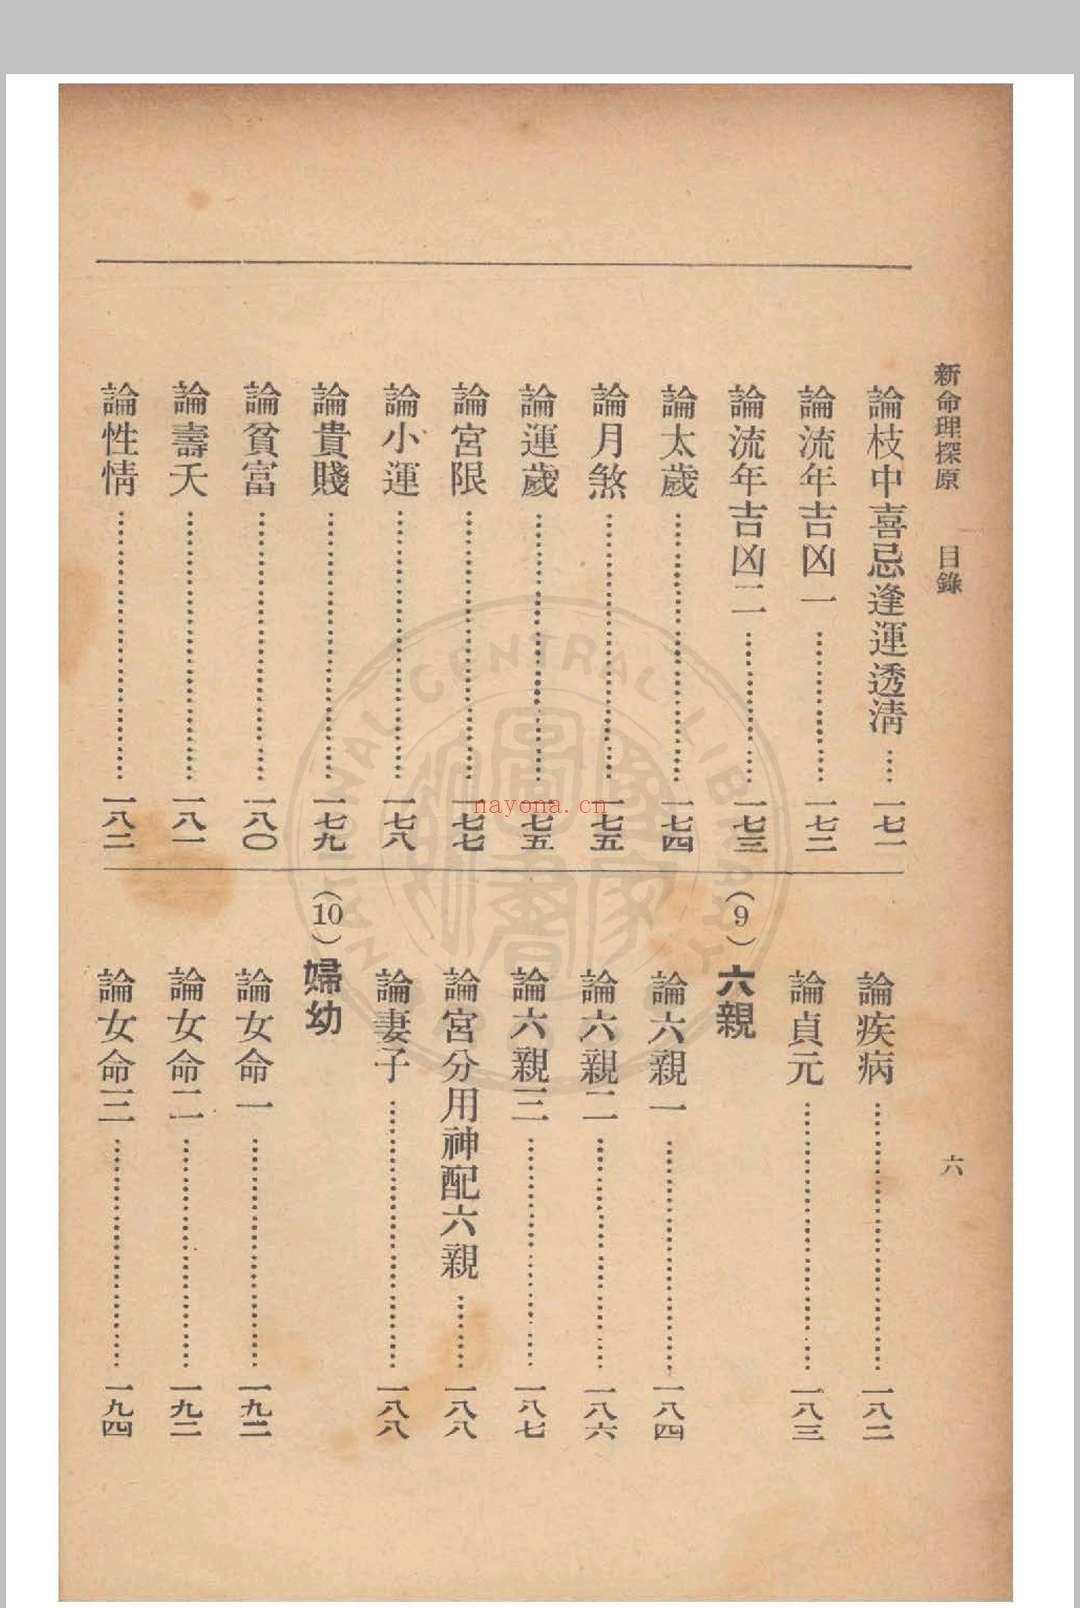 新命理探原 目錄 六
論枝中喜忌逢運透清……一七一
論流年吉凶一……一七二
論流年吉凶二……一七三
論太歲……一七四
論月煞……一七五
論運歲……一七五
論宮限……一七七
論小運……一七八
論貴賤……一七九
論貧富……一八〇
論壽夭……一八一
論性情……一八二
論疾病……一八二
論貞元……一八三
(9)六親
論六親一……一八四
論六親二……一八六
論六親三……一八七
論宮分用神配六親……一八八
論妻子……一八八
(10)婦幼
論女命一……一九二
論女命二……一九二
論女命三……一九四
NATIONAL CENTRAL LIBRARY
nayona.cn